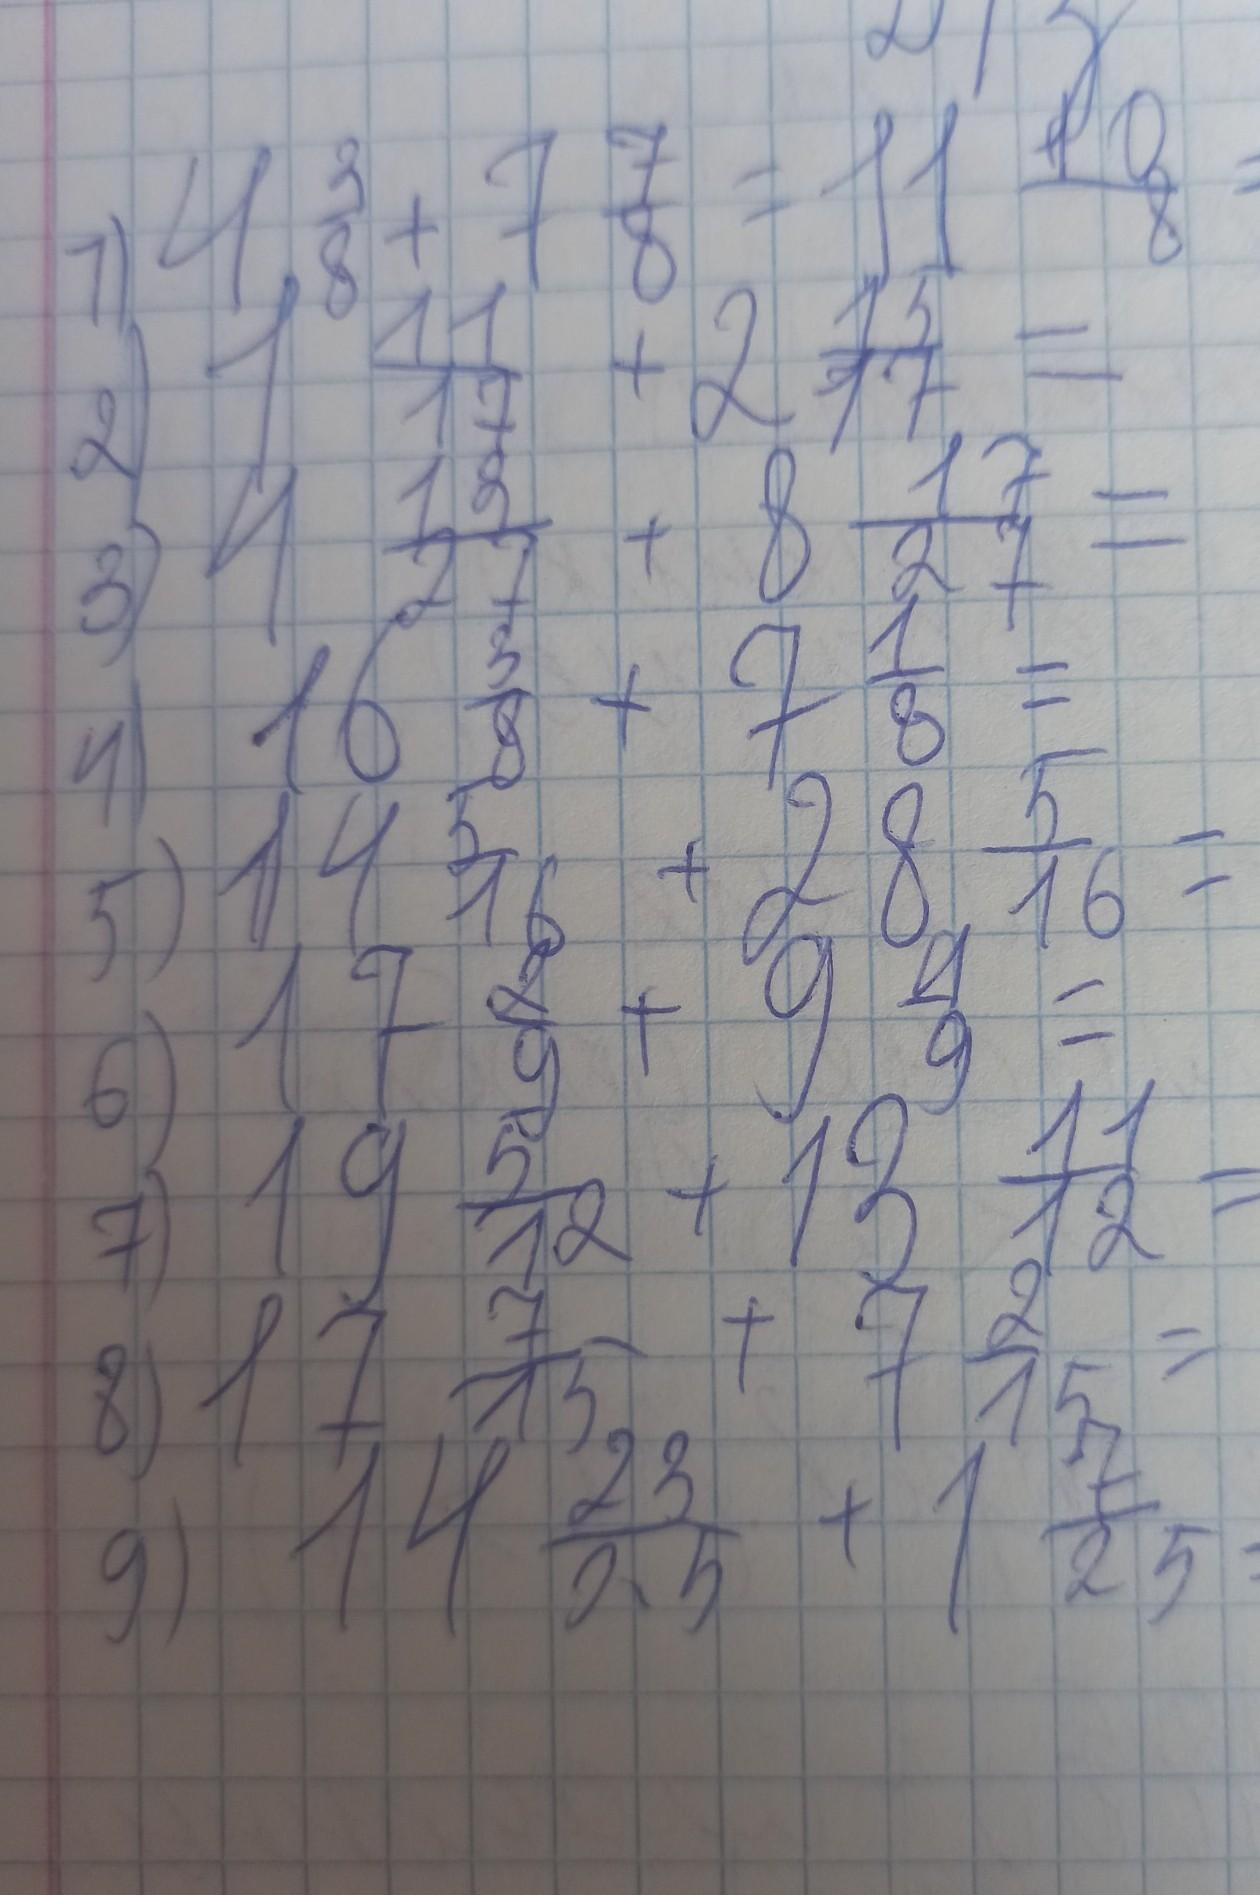 Д/з
1) 4 3/8 + 7 7/8 = 11 10/8 =
2) 1 11/17 + 2 15/17 =
3) 4 13/27 + 8 17/27 =
4) 16 3/8 + 7 1/8 =
5) 14 5/16 + 28 5/16 =
6) 17 8/9 + 9 4/9 =
7) 19 5/12 + 13 11/12 =
8) 17 7/15 + 7 2/15 =
9) 14 23/25 + 1 7/25 =